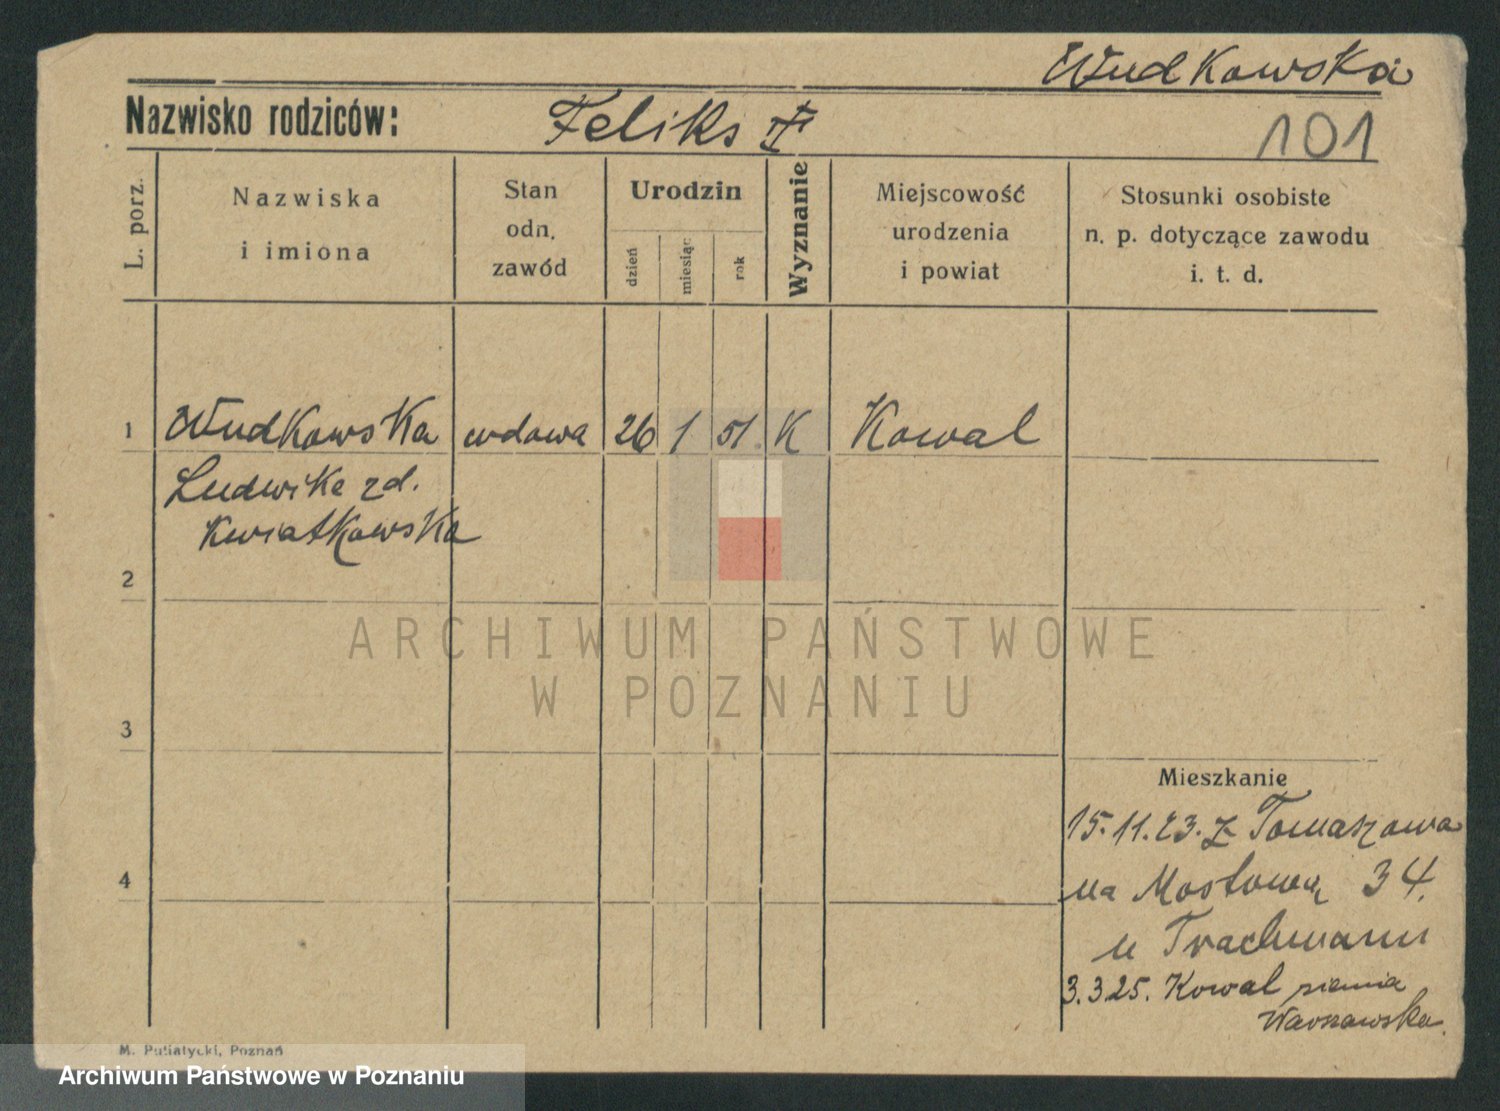 Wudkowska
Nazwisko rodziców: Feliks
101
L. porz.
Nazwiska i imiona
Stan odn. zawód
Urodzin
dzień
miesiąc
rok
Wyznanie
Miejscowość urodzenia i powiat
Stosunki osobiste n. p. dotyczące zawodu i. t. d.
1 Wudkowska wdowa 26 1 51. K Kowal
Ludwika zd.
Kwiatkowska
2
3
4
Mieszkanie
15.11.23. z Tomaszowa
na Mostową 34.
u Trachmann
3.3.25. Kowal ziemia
Warszawska.
M. Putiatycki, Poznań
ARCHIWUM PAŃSTWOWE
W POZNANIU
Archiwum Państwowe w Poznaniu